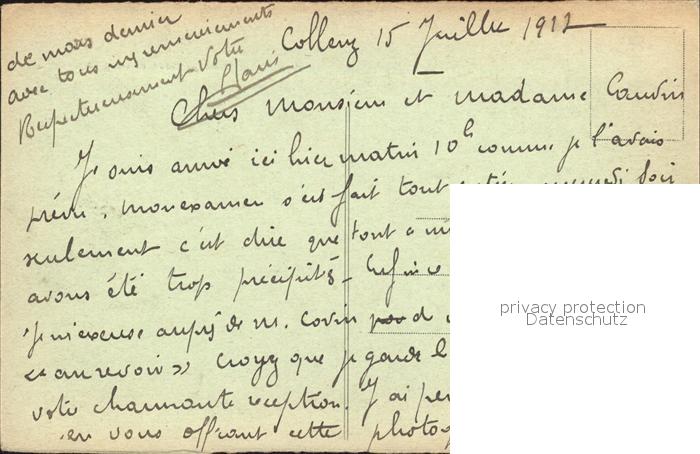 Coblenz 15 Juillet 1912
Chers Monsieur et madame Caudin
Je suis arrivé ici hier matin 10h comme je l'avais
prévu, mon examen s'est fait tout soir
seulement c'est dire que tout a
avons été trop précipités. Enfin
Je m'excuse auprès de m. Covin d
"au revoir" croyez que je garde l
votre charmante réception. J'ai per
en vous offrant cette photog
de mars dernier
avec tous mes remerciements
Respectueusement votre
privacy protection
Datenschutz